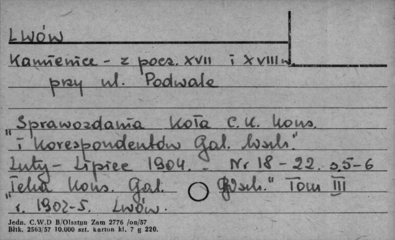 Lwów
Kamienice - z pocz. XVII i XVIII w
przy ul. Podwale
"Sprawozdania Koła C.K. Kons.
i Korespondentów Gal. Wsch."
Luty - Lipiec 1904. - Nr 18 - 22. s. 5-6
"Teka Kons. Gal. Wsch." Tom III
r. 1902-5. Lwów.
Jedn. C.W.D B/Olsztyn Zam 2776 /on/57
Bltk. 2563/57 10.000 szt. karton kl. 7 g 220.